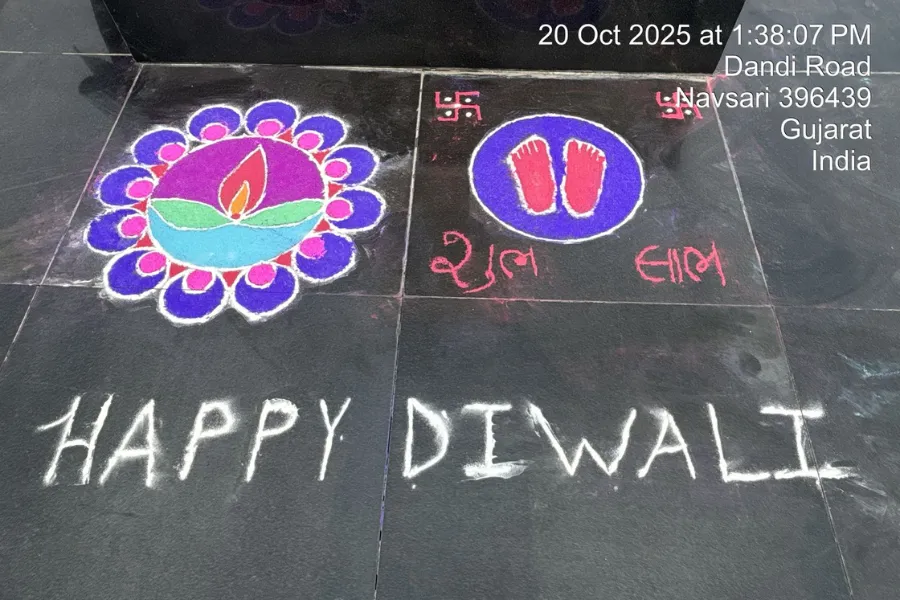 20 Oct 2025 at 1:38:07 PM
Dandi Road
Navsari 396439
Gujarat
India
શુભ લાભ
HAPPY DIWALI